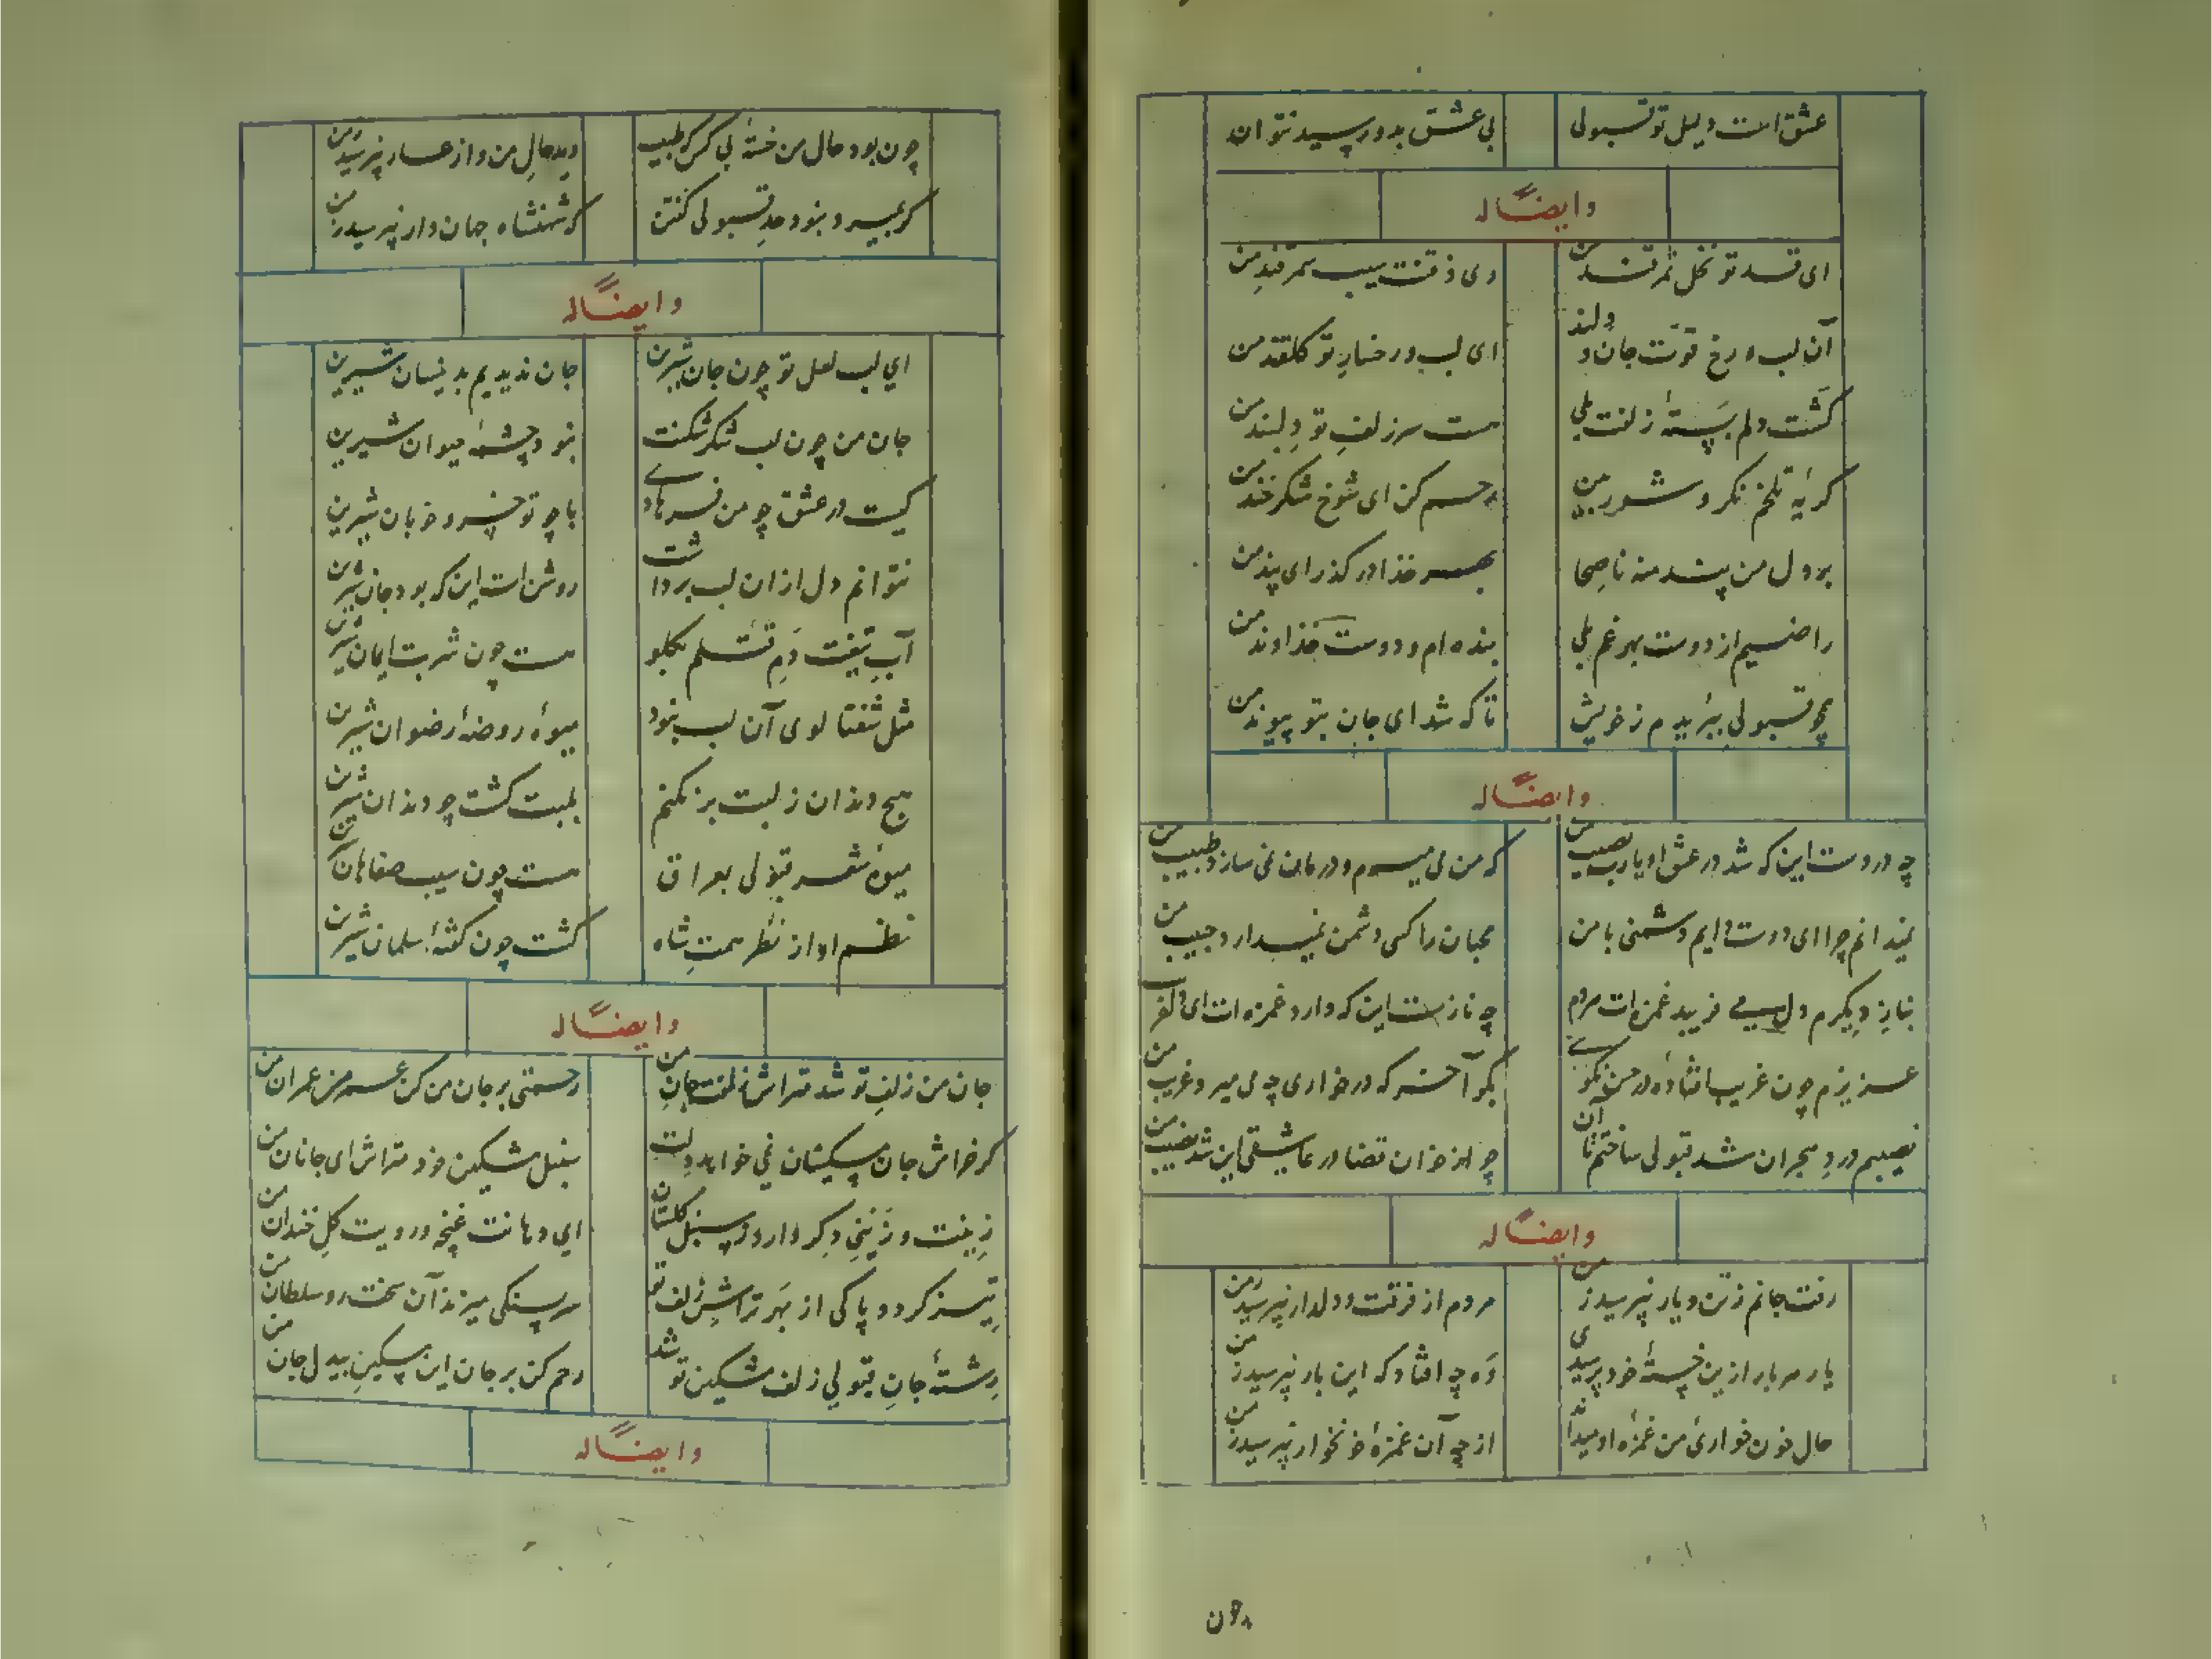 عشق است دلیل تو قبولی
بی عشق بدو رسید نتوان
وایضاً له
ای قد تو نخل ثمر قند من
وی ذقنت سیب سمرقند من
آن لب و رخ قوّت جان و دلند
ای لب و رخسار تو گلقند من
گشت دلم بستهٔ زلفت بلی
هست سر زلف تو دلبند من
گریهٔ تلخم نگر و شور بین
رحم کن ای شوخ شکرخند من
بر دل من پند منه ناصحا
بهر خدا در گذر ای پند من
راضیم از دوست بهر غم بلی
بنده ام و دوست خداوند من
همچو قبولی ببریدم ز خویش
تا که شد ای جان بتو پیوند من
وایضاً له
چه دردست این که شد در عشق او یارب نصیب من
که من می میرم و درمان نمی سازد طبیب من
نمیدانم چرا ای دوست دایم دشمنی با من
محبان را کسی دشمن نمیدارد حبیب من
بناز دیگرم دل می فریبد غمزه ات هردم
چه نازست این که دارد غمزه ات ای
عزیزم چون غریب افتاده در حسن نکو
بگو آخر که در خواری چه می میرد غریب من
نصیبم درد هجران شد قبولی ساختم با آن
چو از خوان قضا در عاشقی این شد نصیب من
وایضاً له
رفت جانم ز تن و یار نپرسید ز من
مردم از فرقت و دلدار نپرسید ز من
یار هر بار ازین خستهٔ خود پرسیدی
وه چه افتاد که این بار نپرسید ز من
حال خون خواری من غمزهٔ او میداند
از چه آن غمزهٔ خونخوار نپرسید ز من
چون بود حال من خستهٔ بی کس که طبیب
دید حال من و از عار نپرسید ز من
گر بمیرد نبود حد قبولی گفتن
که شهنشاه جهان دار نپرسید ز من
وایضاً له
ای لب لعل تو چون جان شیرین
جان ندیدیم بدینسان شیرین
جان من چون لب شکر شکنت
نبود چشمهٔ حیوان شیرین
کیست در عشق چو من فرهادی
با چو تو خسرو خوبان شیرین
نتوانم دل از ان لب برداشت
روشن است این که بود جان شیرین
آب تیغت دم قتلم بگلو
هست چون شربت ایمان شیرین
مثل شفتالوی آن لب نبود
میوهٔ روضهٔ رضوان شیرین
هیچ دندان ز لبت بر نکنم
بلبت گشت چو دندان شیرین
میوهٔ شعر قبولی بعراق
هست چون سیب صفاهان شیرین
نظم او از نظر همت شاه
گشت چون گفتهٔ سلمان شیرین
وایضاً له
جان من زلف تو شد متراش زلفت جان من
رحمتی بر جان من کن عمر من عمران من
گر خراش جان مسکینان نمی خواهد دلت
سنبل مشکین خود متراش ای جانان من
زینت و زینی دگر دارد ز سنبل گلستان
ای دهانت غنچه و رویت گل خندان من
تیز کرد و پاکی از بهر تراش زلف تو
سر بسنگی میزند آن سخت رو سلطان من
رشتهٔ جان قبولی زلف مشکین تو شد
رحم کن بر جان این مسکین بیدل جان من
وایضاً له